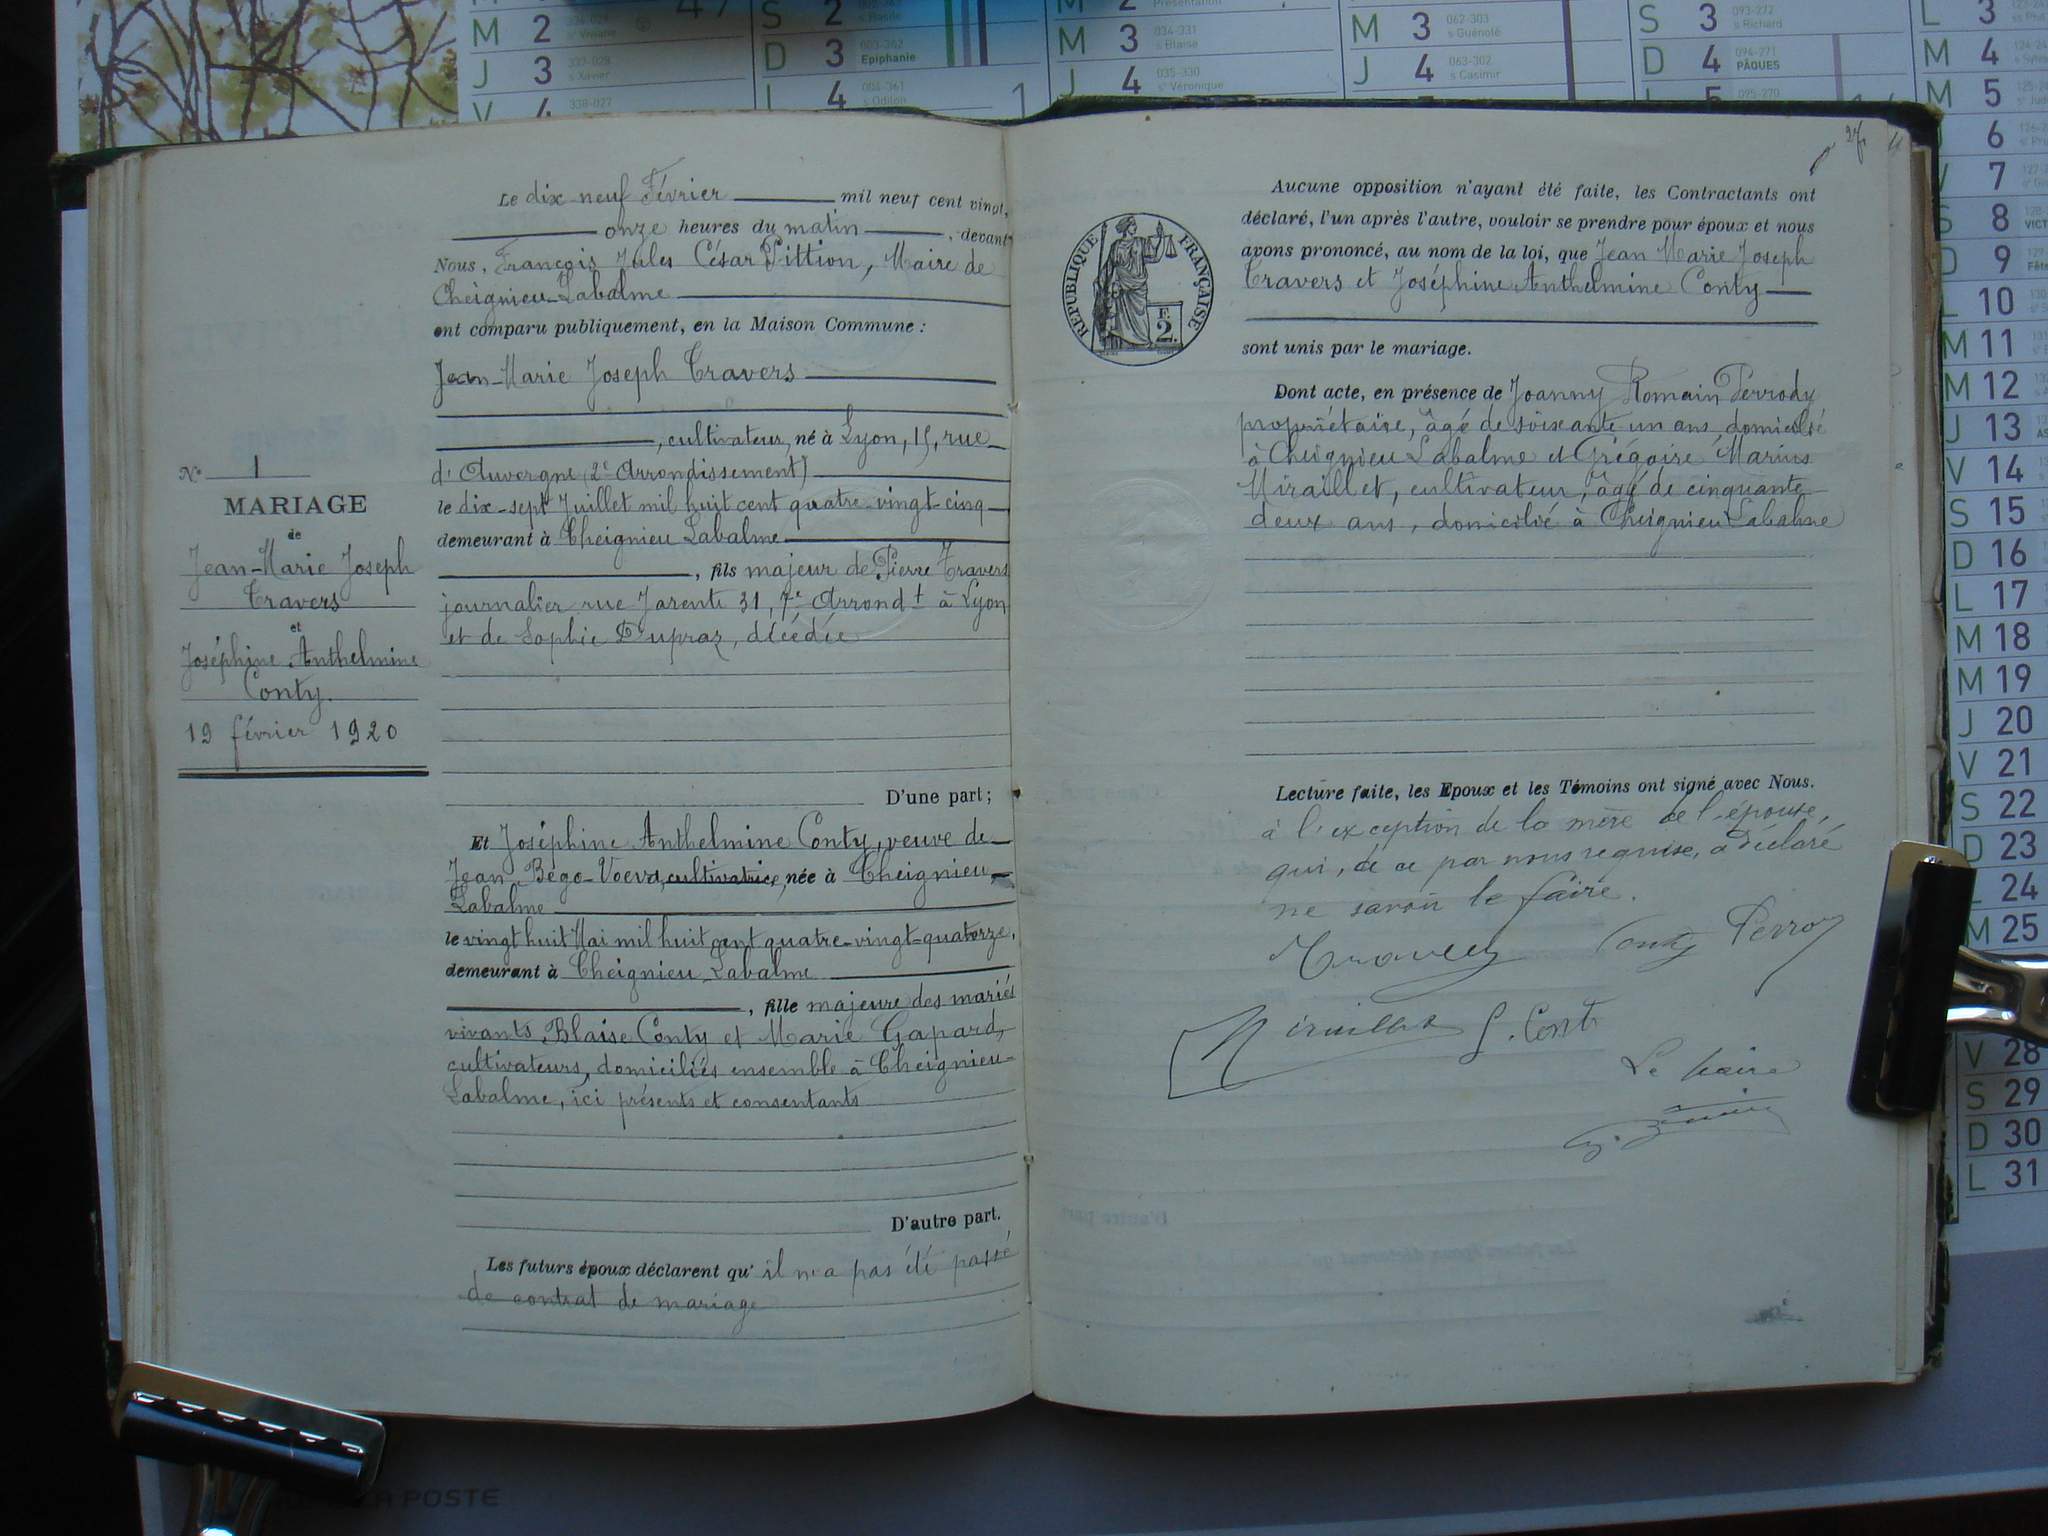 N° 1
MARIAGE
de
Jean-Marie Joseph
Travers
et
Joséphine Anthelmine
Conty.
19 février 1920
Le dix-neuf Février mil neuf cent vingt,
onze heures du matin, devant
Nous, François Jules César Pittion, Maire de
Cheignieu-Labalme
ont comparu publiquement, en la Maison Commune :
Jean-Marie Joseph Travers
, cultivateur, né à Lyon, 15, rue
d'Auvergne (2e Arrondissement)
le dix-sept Juillet mil huit cent quatre-vingt-cinq
demeurant à Cheignieu Labalme
, fils majeur de Pierre Travers
journalier rue Jarente 31, 7e Arrondt à Lyon
et de Sophie Dupraz, décédée
D'une part ;
Et Joséphine Anthelmine Conty, veuve de
Jean Bégo-, cultivatrice, née à Cheignieu-
Labalme
le vingt huit Mai mil huit cent quatre-vingt-quatorze,
demeurant à Cheignieu Labalme
, fille majeure des mariés
vivants Blaise Conty et Marie Gapard,
cultivateurs, domiciliés ensemble à Cheignieu-
Labalme, ici présents et consentants
D'autre part.
Les futurs époux déclarent qu'il n'a pas été passé
de contrat de mariage
27
RÉPUBLIQUE FRANÇAISE
F.
2.
Aucune opposition n'ayant été faite, les Contractants ont
déclaré, l'un après l'autre, vouloir se prendre pour époux et nous
avons prononcé, au nom de la loi, que Jean Marie Joseph
Travers et Joséphine Anthelmine Conty
sont unis par le mariage.
Dont acte, en présence de Joanny Romain Perrody
propriétaire, âgé de soixante un ans, domicilié
à Cheignieu Labalme et Grégoire Marius
Miraillet, cultivateur, âgé de cinquante
deux ans, domicilié à Cheignieu Labalme
Lecture faite, les Epoux et les Témoins ont signé avec Nous.
à l'exception de la mère de l'épouse,
qui, de ce par nous requise, a déclaré
ne savoir le faire.
Travers Conty Perrody
Miraillet J. Conty
Le Maire
LA POSTE